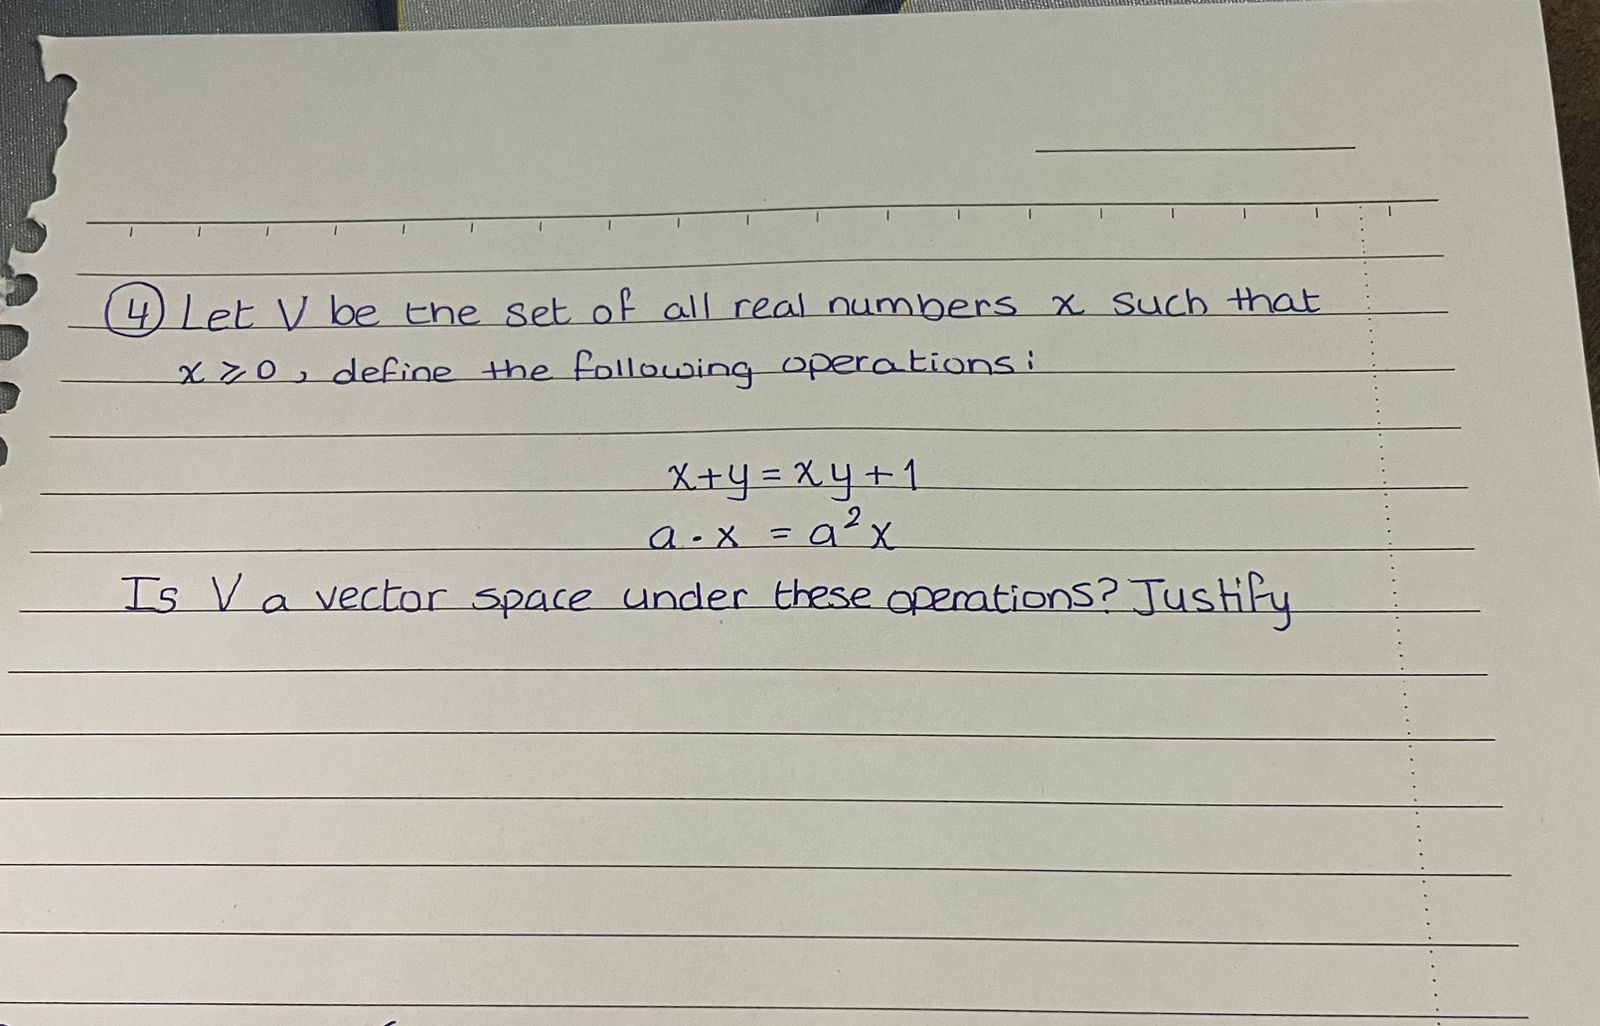 ④ Let V be the set of all real numbers x such that
x ⩾ 0, define the following operations:
x+y = xy+1
a · x = a²x
Is V a vector space under these operations? Justify